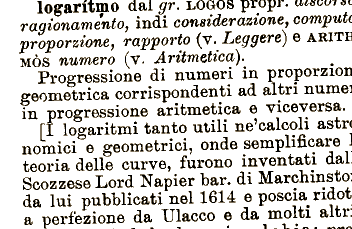 logarítmo dal gr. LOGOS propr. discorso
ragionamento, indi considerazione, computo
proporzione, rapporto (v. Leggere) e ARITH
MÒS numero (v. Aritmetica).
Progressione di numeri in proporzion
geometrica corrispondenti ad altri numer
in progressione aritmetica e viceversa.
[I logaritmi tanto utili ne'calcoli astro
nomici e geometrici, onde semplificare l
teoria delle curve, furono inventati dall
Scozzese Lord Napier bar. di Marchinston
da lui pubblicati nel 1614 e poscia ridot
a perfezione da Ulacco e da molti altri